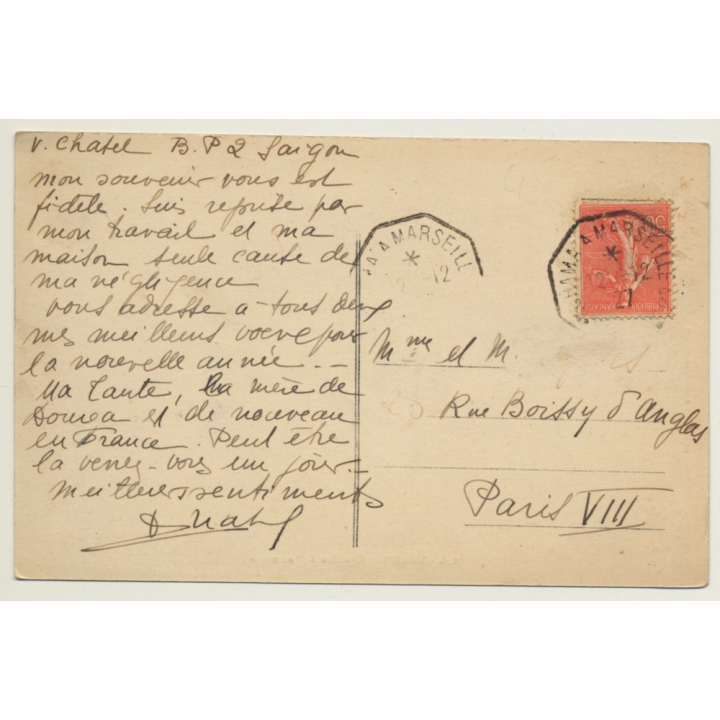 V. Chatel B.P 2 Saigon
mon souvenir vous est
fidele. Suis reprise par
mon travail et ma
maison seule cause de
ma négligence
vous adresse à tous deux
mes meilleurs voeux pour
la nouvelle année --
Ma Tante, la mère de
est de nouveau
en France. Peut être
la verrez-vous un jour -
meilleurs sentiments
Mme et M.
Rue Boissy d'Anglas
Paris VIII
A MARSEILL
12
HAMA A MARSEILLE
12 -12
27
50
REPUBLIQUE FRANCAISE